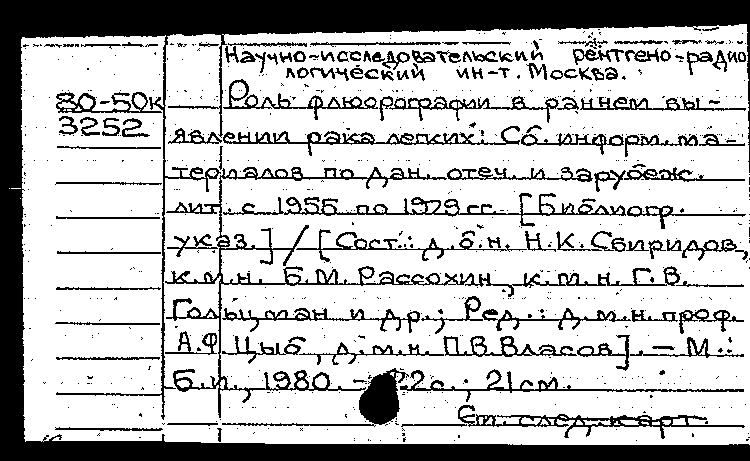 Научно-исследовательский рентгено-радио
логический ин-т. Москва.
80-50к
Роль флюорографии в раннем вы-
3252
явлении рака легких: Сб. информ. ма-
териалов по дан. отеч. и зарубеж.
лит. с 1955 по 1979 гг. [Библиогр.
указ.] / [Сост.: д.б.н. Н.К.Свиридов,
к.м.н. Б.М. Рассохин, к.м.н. Г.В.
Гольцман и др.; Ред.: д.м.н. проф.
А.Ф Цыб, д.м.н. П.В.Власов]. — М.:
Б.и., 1980. - 22с.; 21см.
См. след. карт.